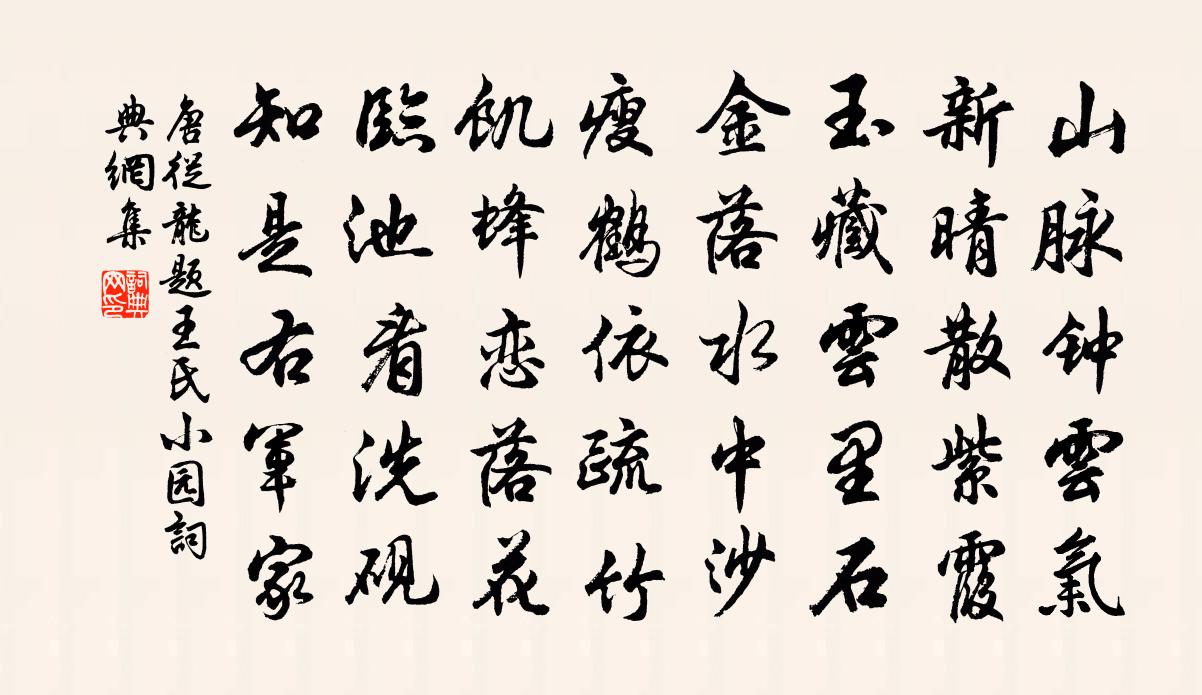 山脉钟雲氣
新晴散紫霞
玉藏雲里石
金落水中沙
瘦鶴依疏竹
飢蜂恋落花
臨池看洗硯
知是右軍家
唐從龍題王氏小园詞
典網集
詞典
网印